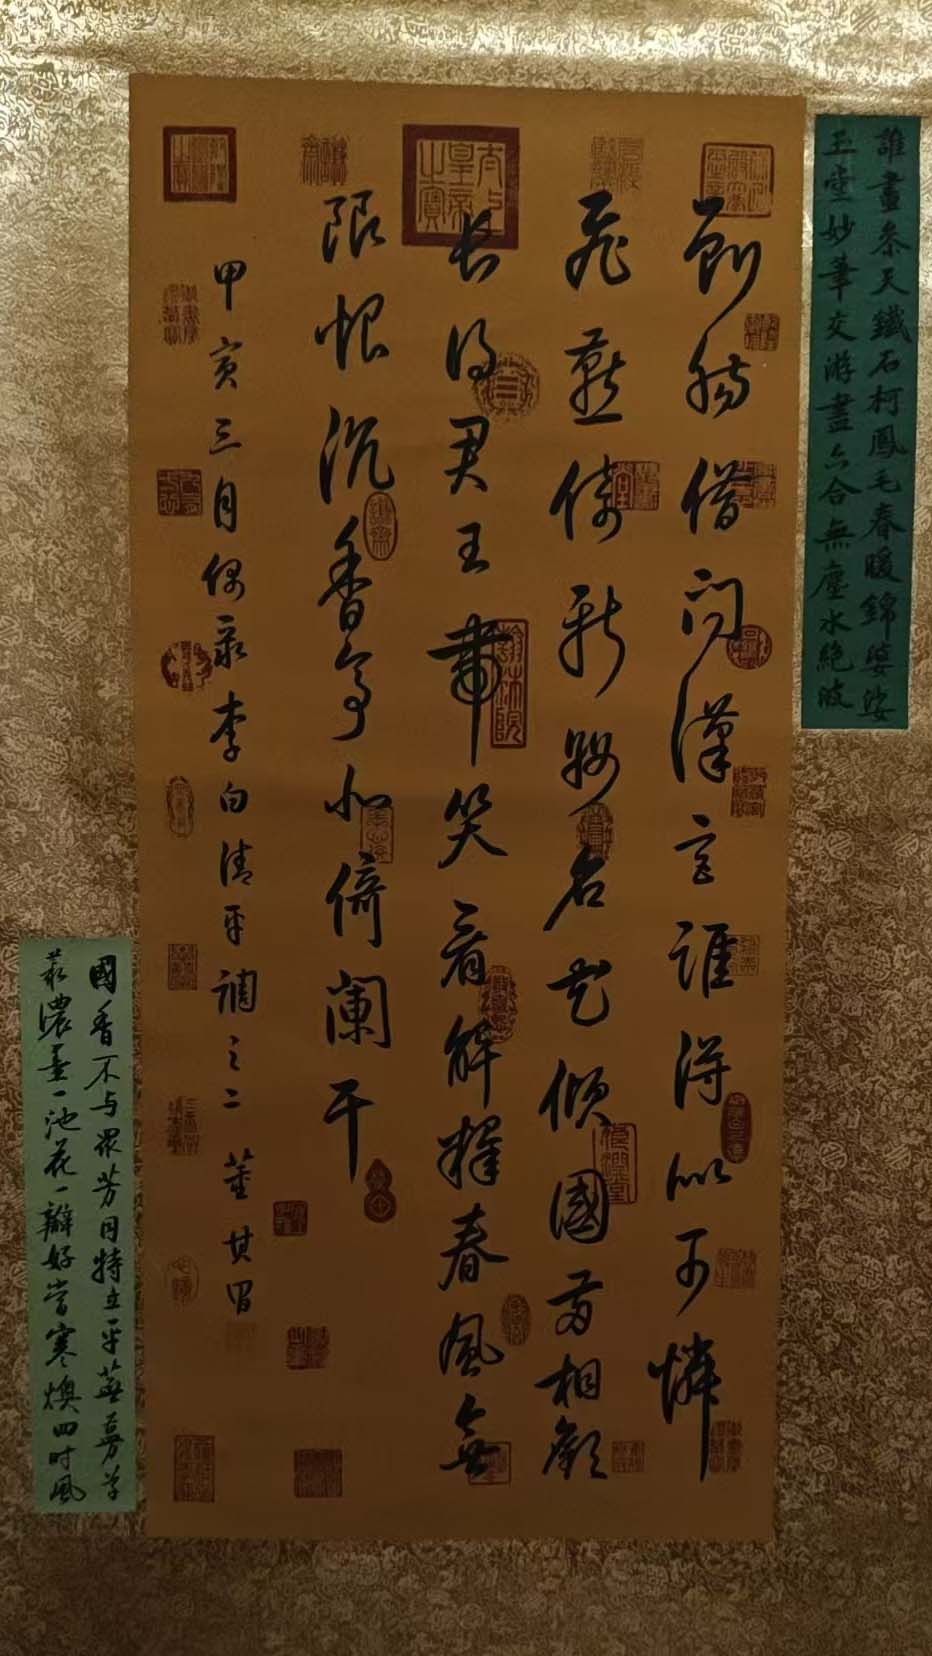 誰畫參天鐵石柯鳳毛春暖錦婆娑
玉堂妙筆交游盡六合無塵水絕波
断腸借问漢宮誰得似可憐
飛燕倚新妝名花傾國兩相歡
長得君王帶笑看解釋春風無
限恨沉香亭北倚闌干
甲寅三月偶录李白清平調之二 董其昌
國香不与眾芳同特立平蕪蔓草
叢濃墨一池花一瓣好當寒燠四时風
太上皇帝之寶
翰林院